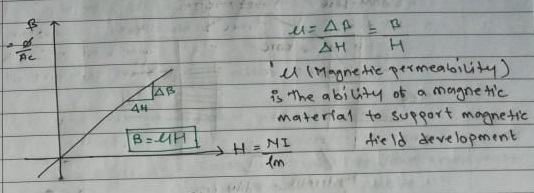 B
= ø
Ac
ΔB
ΔH
B = μH
H = NI
lm
μ = ΔB = B
ΔH H
μ (Magnetic permeability)
is the ability of a magnetic
material to support magnetic
field development